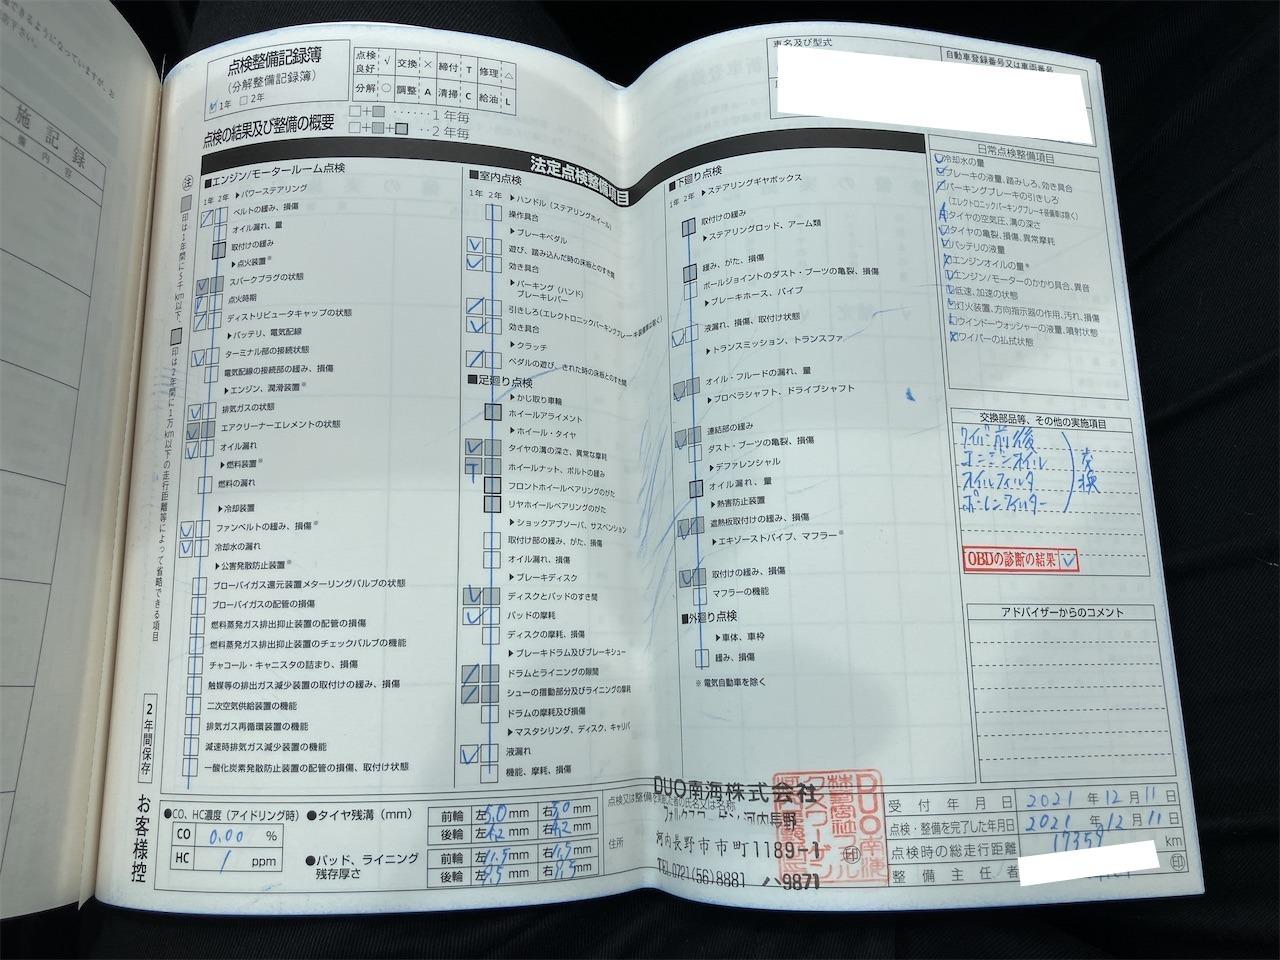 施記録
備内容
点検整備記録簿
(分解整備記録簿)
1年 □2年
点検良好 √ 交換 × 締付 T 修理 △
分解 ○ 調整 A 清掃 C 給油 L
点検の結果及び整備の概要
□+■……1年毎
□+■+■‥2年毎
車名及び型式
自動車登録番号又は車両番号
法定点検整備項目
注 ■印は1年間に5千km以下、■印は2年間に1万km以下の走行距離等によって省略できる項目
2年間保存
お客様控
■エンジン/モータールーム点検
1年 2年 ▶パワーステアリング
ベルトの緩み、損傷
オイル漏れ、量
取付けの緩み
▶点火装置※
スパークプラグの状態
点火時期
ディストリビュータキャップの状態
▶バッテリ、電気配線
ターミナル部の接続状態
電気配線の接続部の緩み、損傷
▶エンジン、潤滑装置※
排気ガスの状態
エアクリーナーエレメントの状態
オイル漏れ
▶燃料装置※
燃料の漏れ
▶冷却装置
ファンベルトの緩み、損傷※
冷却水の漏れ
▶公害発散防止装置※
ブローバイガス還元装置メターリングバルブの状態
ブローバイガスの配管の損傷
燃料蒸発ガス排出抑止装置の配管の損傷
燃料蒸発ガス排出抑止装置のチェックバルブの機能
チャコール・キャニスタの詰まり、損傷
触媒等の排出ガス減少装置の取付けの緩み、損傷
二次空気供給装置の機能
排気ガス再循環装置の機能
減速時排気ガス減少装置の機能
一酸化炭素発散防止装置の配管の損傷、取付け状態
■室内点検
1年 2年 ▶ハンドル(ステアリングホイール)
操作具合
▶ブレーキペダル
遊び、踏み込んだ時の床板とのすき間
効き具合
▶パーキング(ハンド)ブレーキレバー
引きしろ(エレクトロニックパーキングブレーキ装備車は除く)
効き具合
▶クラッチ
ペダルの遊び、きれた時の床板とのすき間
■足廻り点検
▶かじ取り車輪
ホイールアライメント
▶ホイール・タイヤ
タイヤの溝の深さ、異常な摩耗
T ホイールナット、ボルトの緩み
フロントホイールベアリングのがた
リヤホイールベアリングのがた
▶ショックアブソーバ、サスペンション
取付け部の緩み、がた、損傷
オイル漏れ、損傷
▶ブレーキディスク
ディスクとパッドのすき間
パッドの摩耗
ディスクの摩耗、損傷
▶ブレーキドラム及びブレーキシュー
ドラムとライニングの隙間
シューの摺動部分及びライニングの摩耗
ドラムの摩耗及び損傷
▶マスタシリンダ、ディスク、キャリパ
液漏れ
機能、摩耗、損傷
■下廻り点検
1年 2年 ▶ステアリングギヤボックス
取付けの緩み
▶ステアリングロッド、アーム類
緩み、がた、損傷
ボールジョイントのダスト・ブーツの亀裂、損傷
▶ブレーキホース、パイプ
液漏れ、損傷、取付け状態
▶トランスミッション、トランスファ
オイル・フルードの漏れ、量
▶プロペラシャフト、ドライブシャフト
連結部の緩み
ダスト・ブーツの亀裂、損傷
▶デファレンシャル
オイル漏れ、量
▶熱害防止装置
遮熱板取付けの緩み、損傷
▶エキゾーストパイプ、マフラー※
取付けの緩み、損傷
マフラーの機能
■外廻り点検
▶車体、車枠
緩み、損傷
※電気自動車を除く
日常点検整備項目
冷却水の量
ブレーキの液量、踏みしろ、効き具合
パーキングブレーキの引きしろ
(エレクトロニックパーキングブレーキ装備車は除く)
タイヤの空気圧、溝の深さ
タイヤの亀裂、損傷、異常摩耗
バッテリの液量
エンジンオイルの量※
エンジン/モーターのかかり具合、異音
低速、加速の状態
灯火装置、方向指示器の作用、汚れ、損傷
ウインドーウォッシャーの液量、噴射状態
ワイパーの払拭状態
交換部品等、その他の実施項目
ワイパー前後
エンジンオイル
オイルフィルタ
ポーレンフィルター
交換
OBDの診断の結果 √
アドバイザーからのコメント
●CO、HC濃度(アイドリング時)
CO 0.00 %
HC 1 ppm
●タイヤ残溝(mm)
前輪 左5.0mm 右5.0mm
後輪 左6.2mm 右6.2mm
●パッド、ライニング残存厚さ
前輪 左11.5mm 右11.5mm
後輪 左9.5mm 右9.5mm
点検又は整備を実施した者の氏名又は名称
住所
DUO南海株式会社
フォルクスワーゲン河内長野
河内長野市市町1189-1
TEL 0721(56)8881
印
受付年月日 2021年12月11日
点検・整備を完了した年月日 2021年12月11日
点検時の総走行距離 17359 km
整備主任者 印